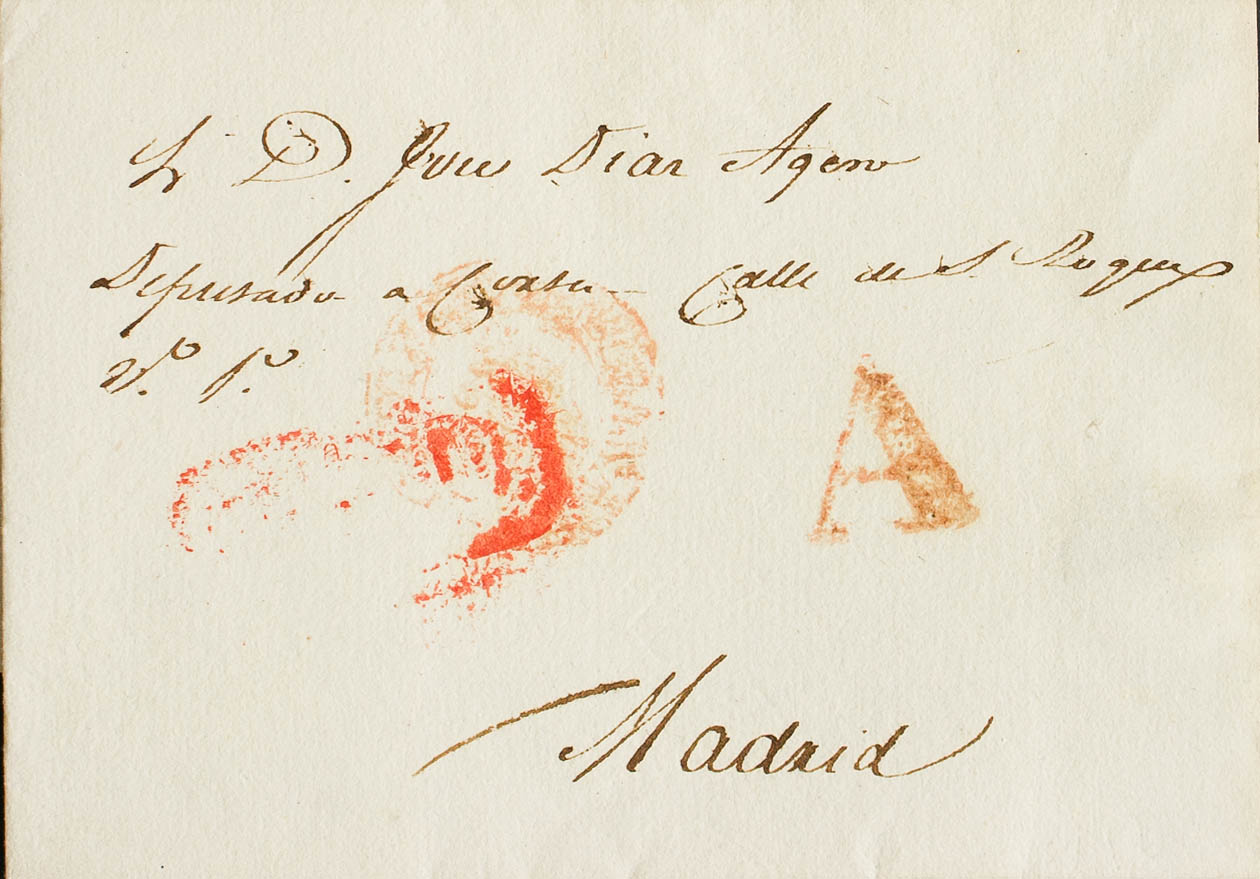 Sr D. Jose Diaz Agero
Diputado a Cortes Calle de S. Roque
A
Madrid